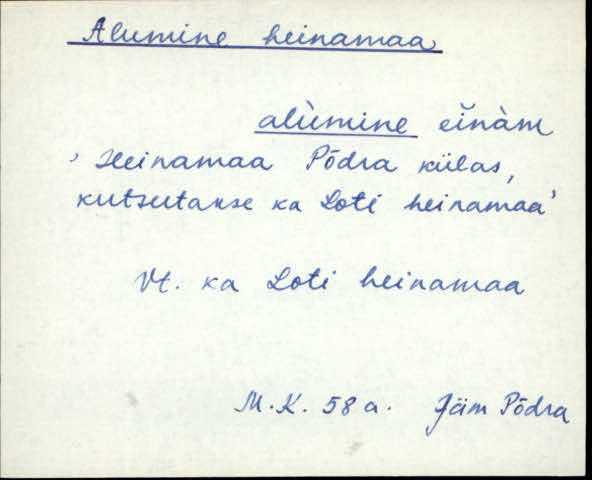 Alumine heinamaa
alùmine eìnàm
' Heinamaa Põdra külas,
kutsutakse ka Loti heinamaa'
Vt. ka Loti heinamaa
M.K. 58 a. Jäm Põdra